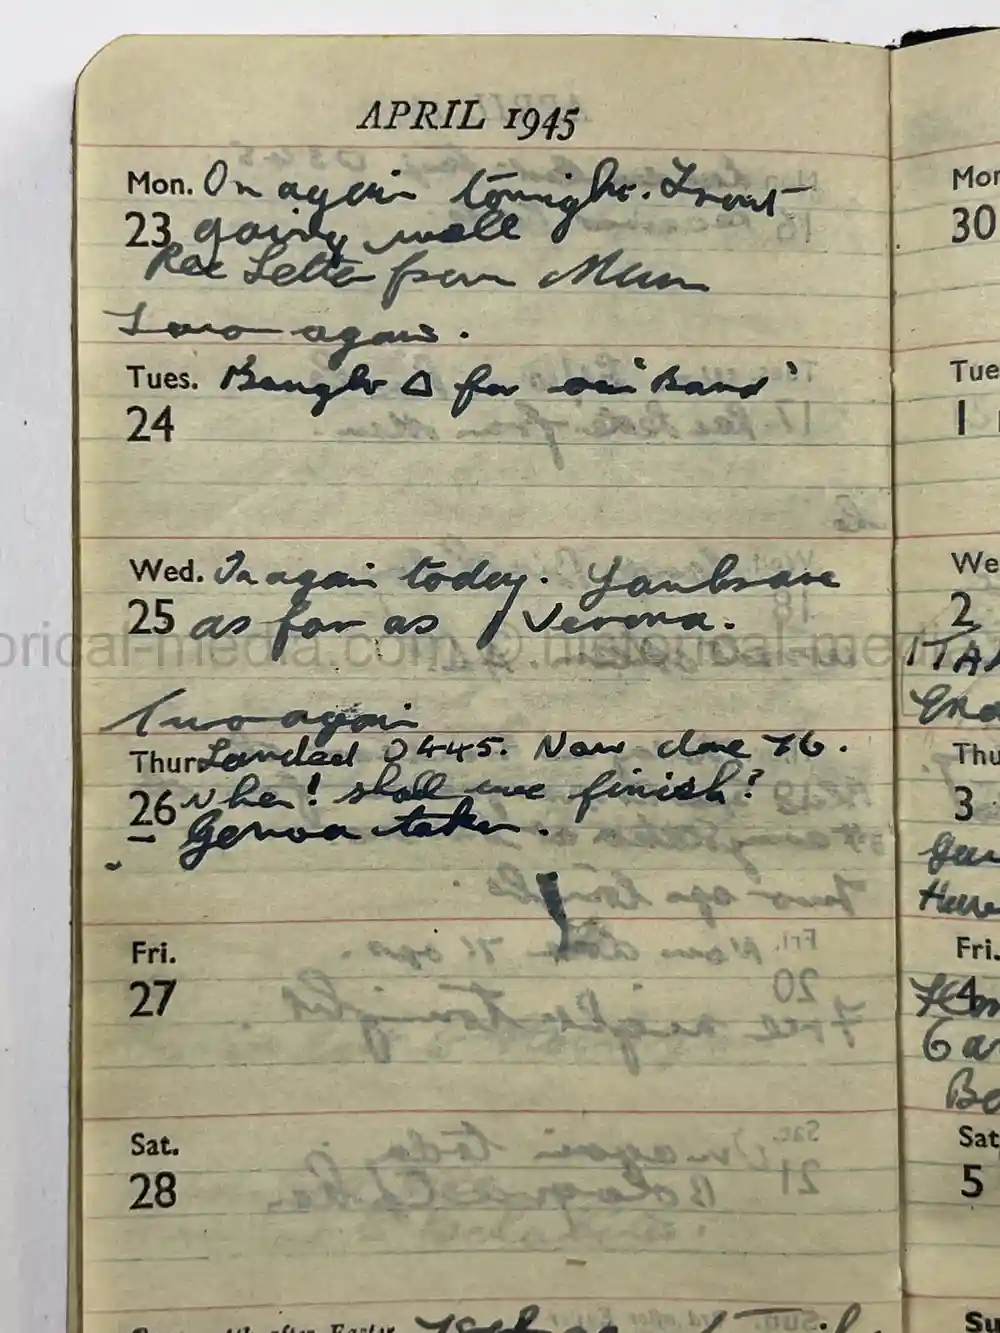 APRIL 1945
Mon. On again tonight. Front
23 going well
Rec Letter from Mum
Two again.
Tues. Bought Δ for our 'Band'
24
Wed. On again today. Yanks are
25 as far as Verona.
Two again
Thur. Landed 0445. Now done 76.
26 When! shall we finish?
Genoa taken.
Fri.
27
Sat.
28
after Easter
historical-media.com © historical-media
Mon
30
Tue
1
We
2
ITA
Thu
3
Fri.
4
6 a
Be
Sat
5
Su